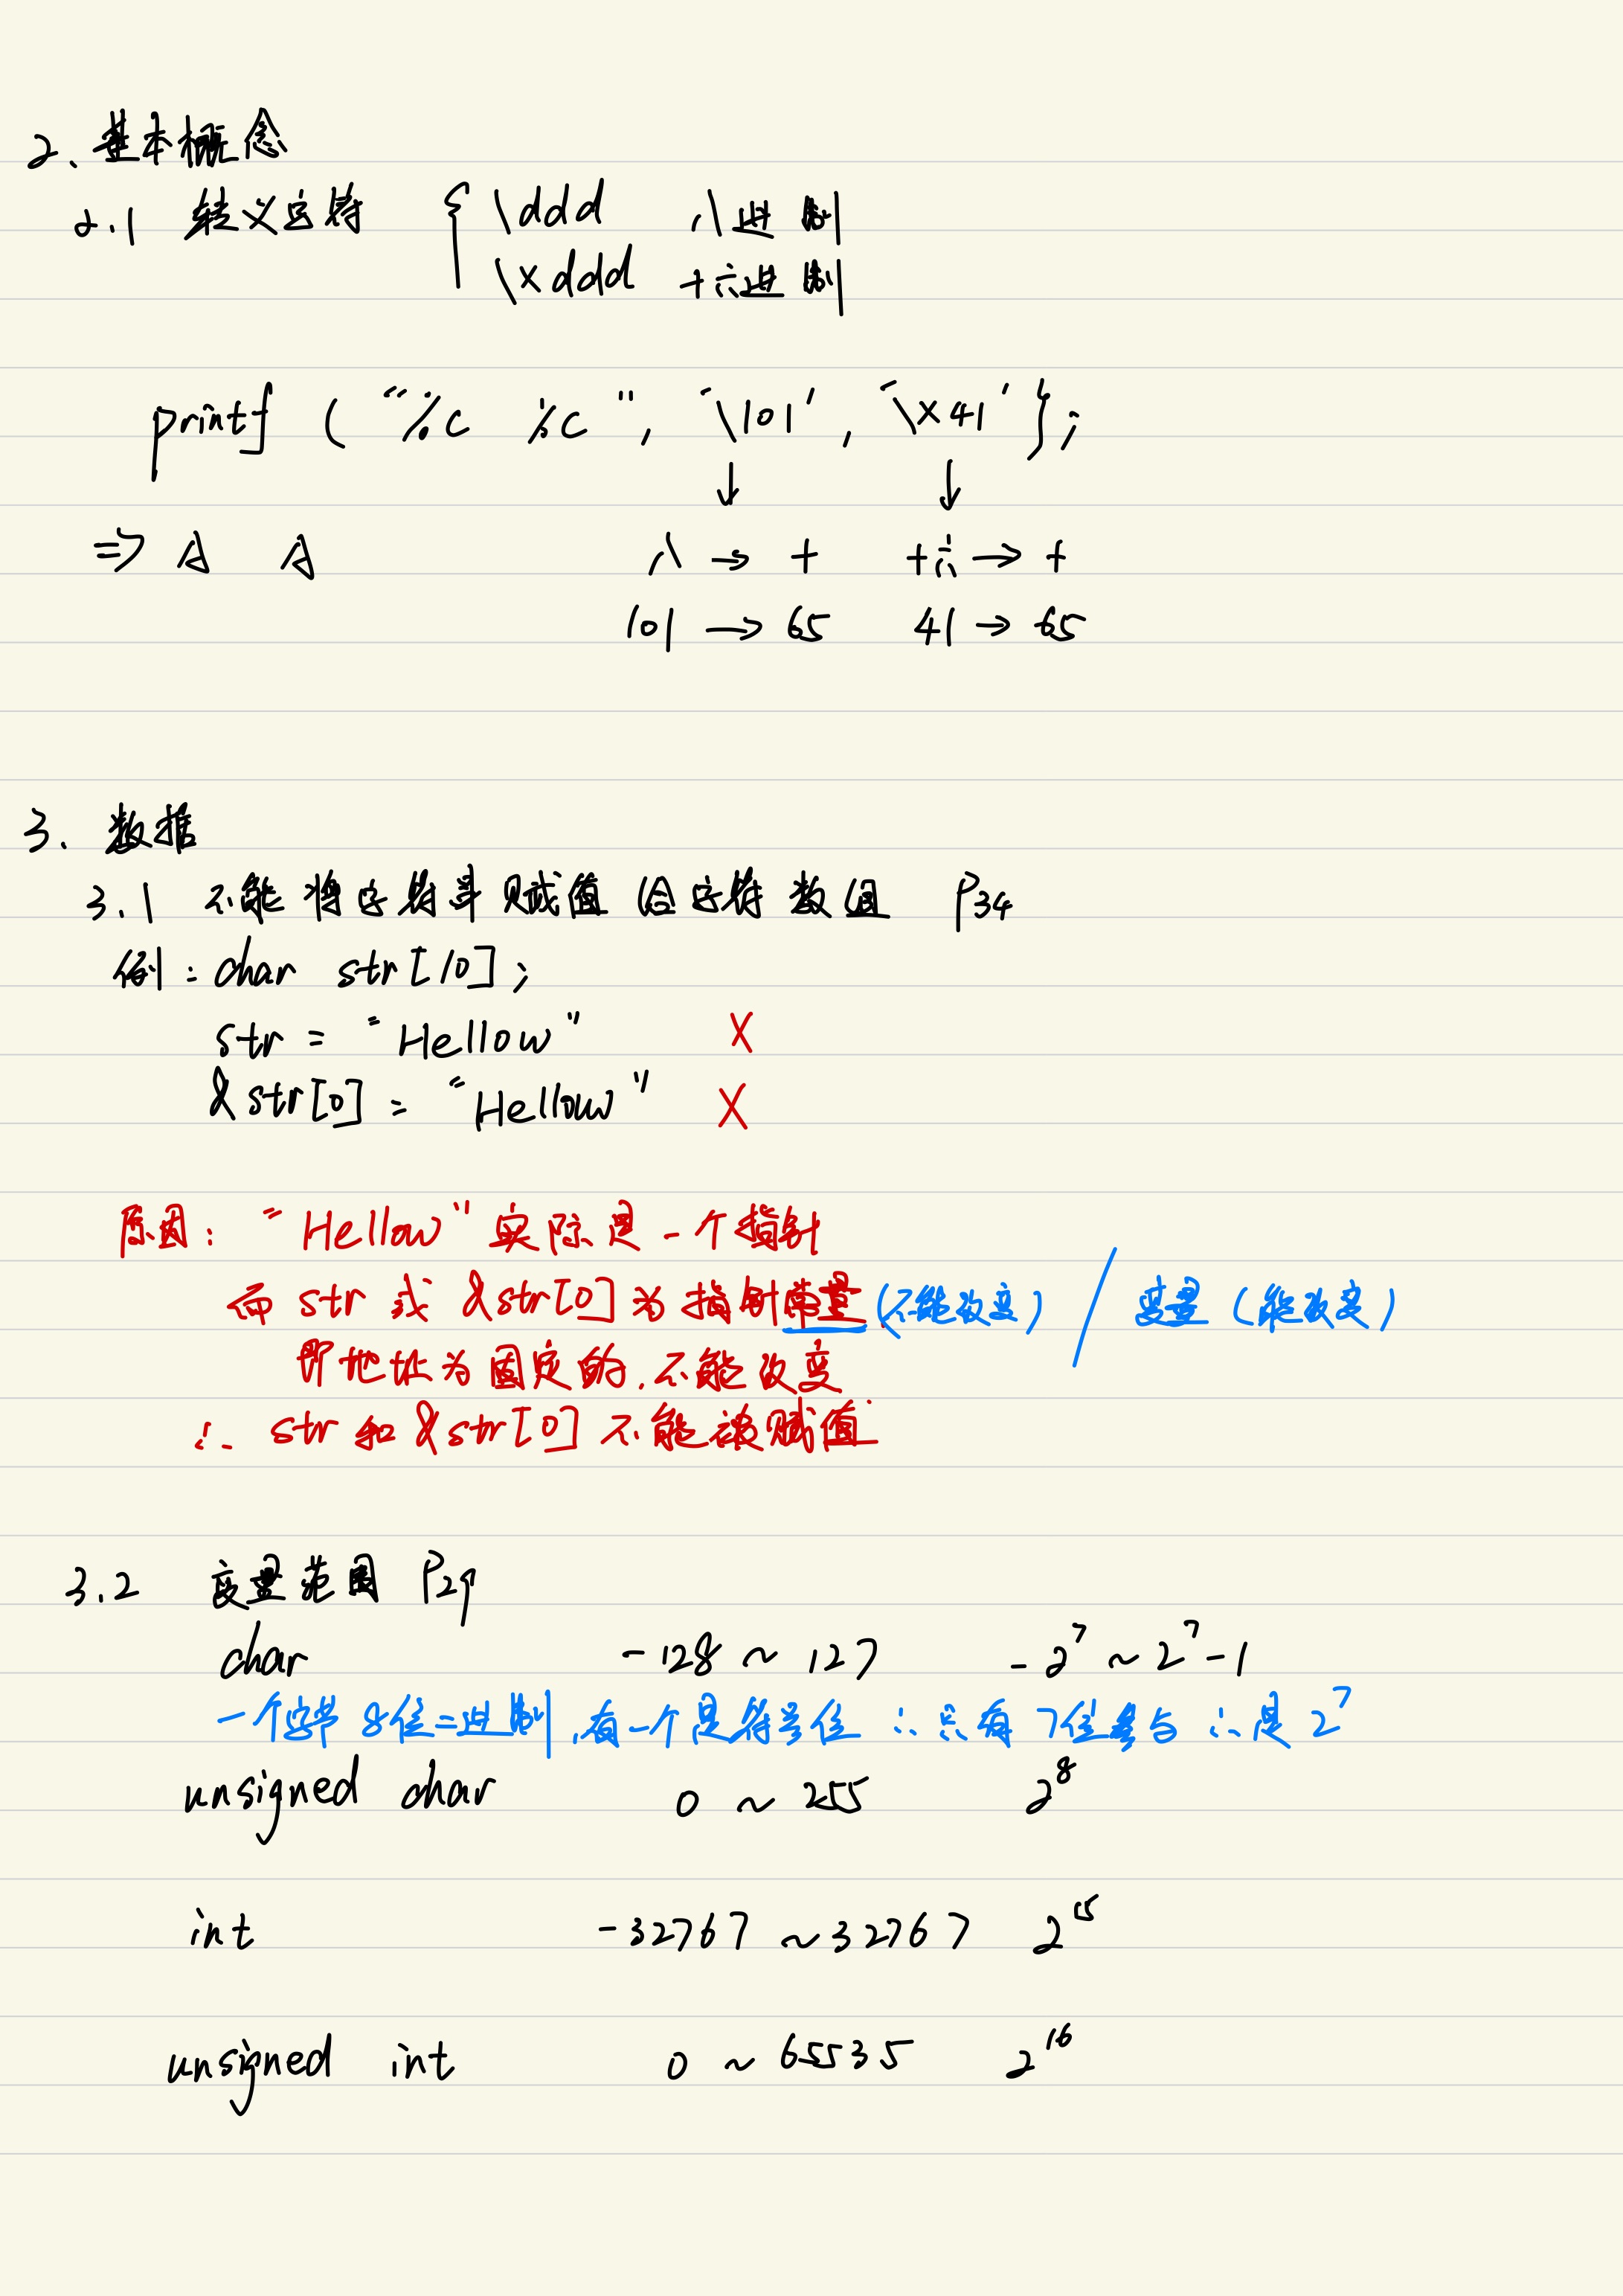 2. 基本概念
2.1 转义字符 { \ddd 八进制
\xddd 十六进制
printf ( "%c %c", '\101', '\x41' );
↓ ↓
⇒ A A 八 → 十 十六 → 十
101 → 65 41 → 65
3. 数据
3.1 不能将字符串赋值给字符数组 P34
例: char str[10];
str = "Hellow" X
&str[0] = "Hellow" X
原因: "Hellow" 实际是一个指针
而 str 或 &str[0] 为指针常量 (不能改变) / 变量 (能改变)
即地址为固定的,不能改变
∴ str 和 &str[0] 不能被赋值
3.2 变量范围 P29
char -128 ~ 127 -2⁷ ~ 2⁷-1
一个字节 8位二进制,有一个是符号位 ∴ 只有 7位参与 ∴ 是 2⁷
unsigned char 0 ~ 255 2⁸
int -32767 ~ 32767 2¹⁵
unsigned int 0 ~ 65535 2¹⁶